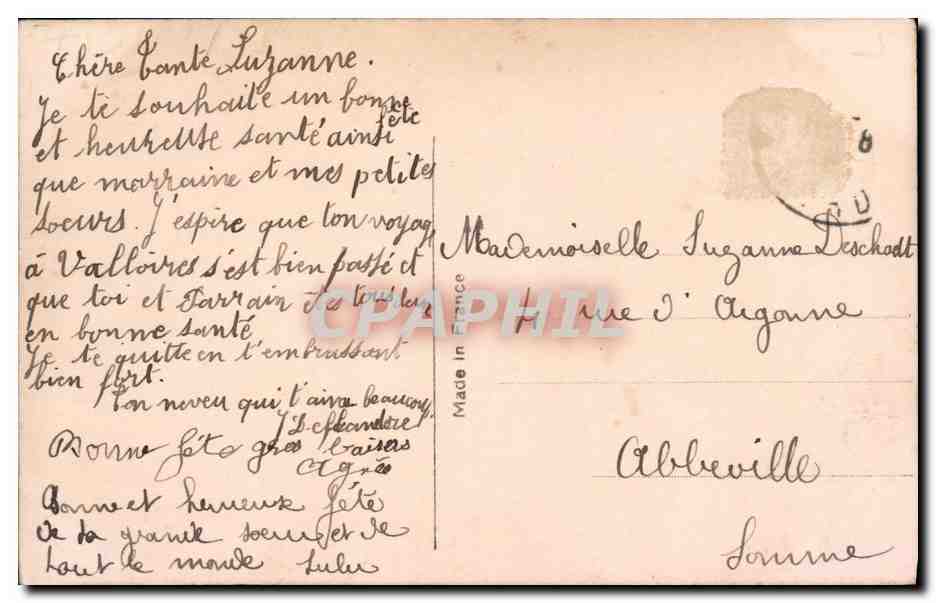 Chère Tante Suzanne.
Je te souhaite un bonne
fête
et heureuse santé ainsi
que marraine et mes petites
soeurs. J'espire que ton voyag
à Valloires s'est bien passé et
que toi et Parrain êtes tous deux
en bonne santé
Je te quitte en t'embrassant
bien fort.
Ton neveu qui t'aime beaucoup.
Bonne fête gros baisers
Agnès
Bonne et heureuse fête
de ta grande soeur et de
tout le monde Lulu
Made in France
Mademoiselle Suzanne Deschodt
4 rue d'Argonne
Abbeville
Somme
CPAPHIL